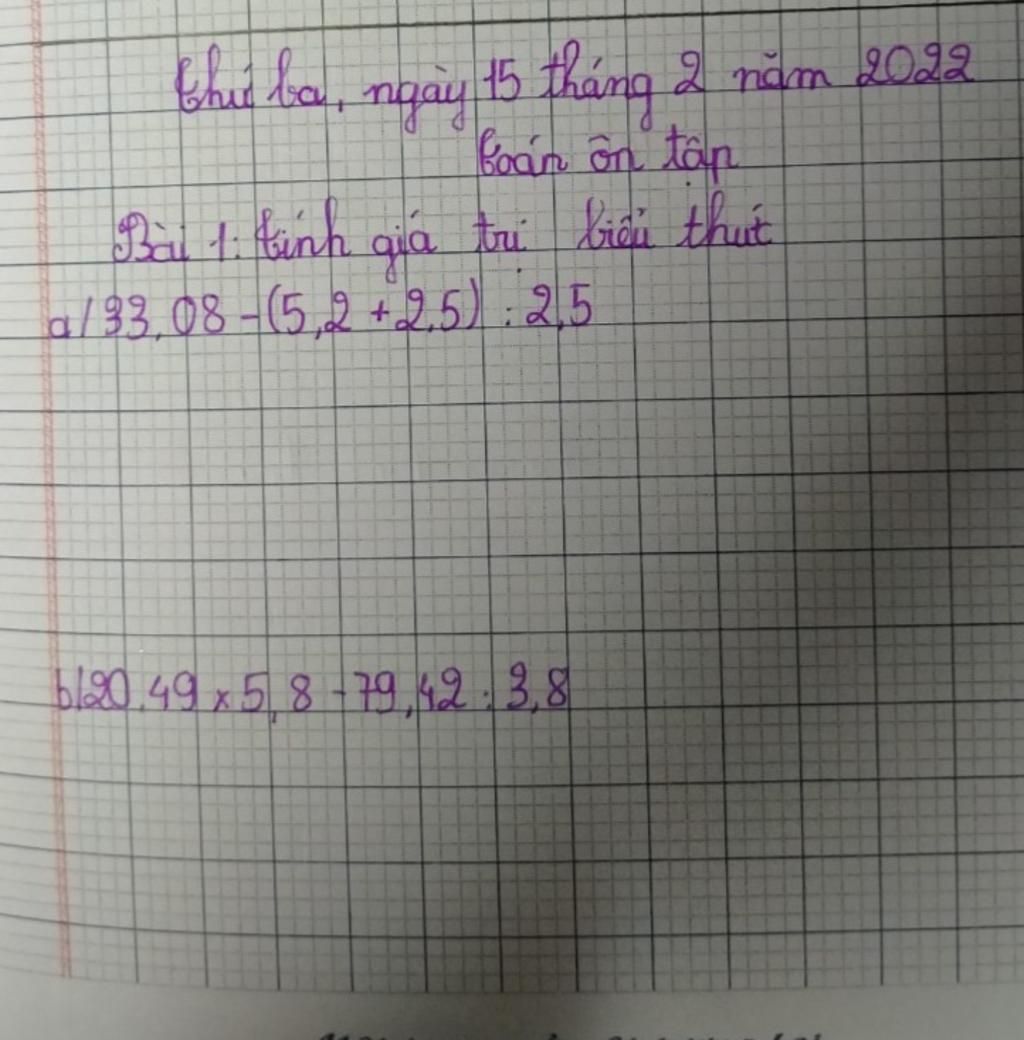 Thứ ba, ngày 15 tháng 2 năm 2022
Toán ôn tập
Bài 1: tính giá trị biểu thức
a/ 33,08 - (5,2 + 2,5) : 2,5
b/ 20,49 x 5,8 - 79,42 : 3,8